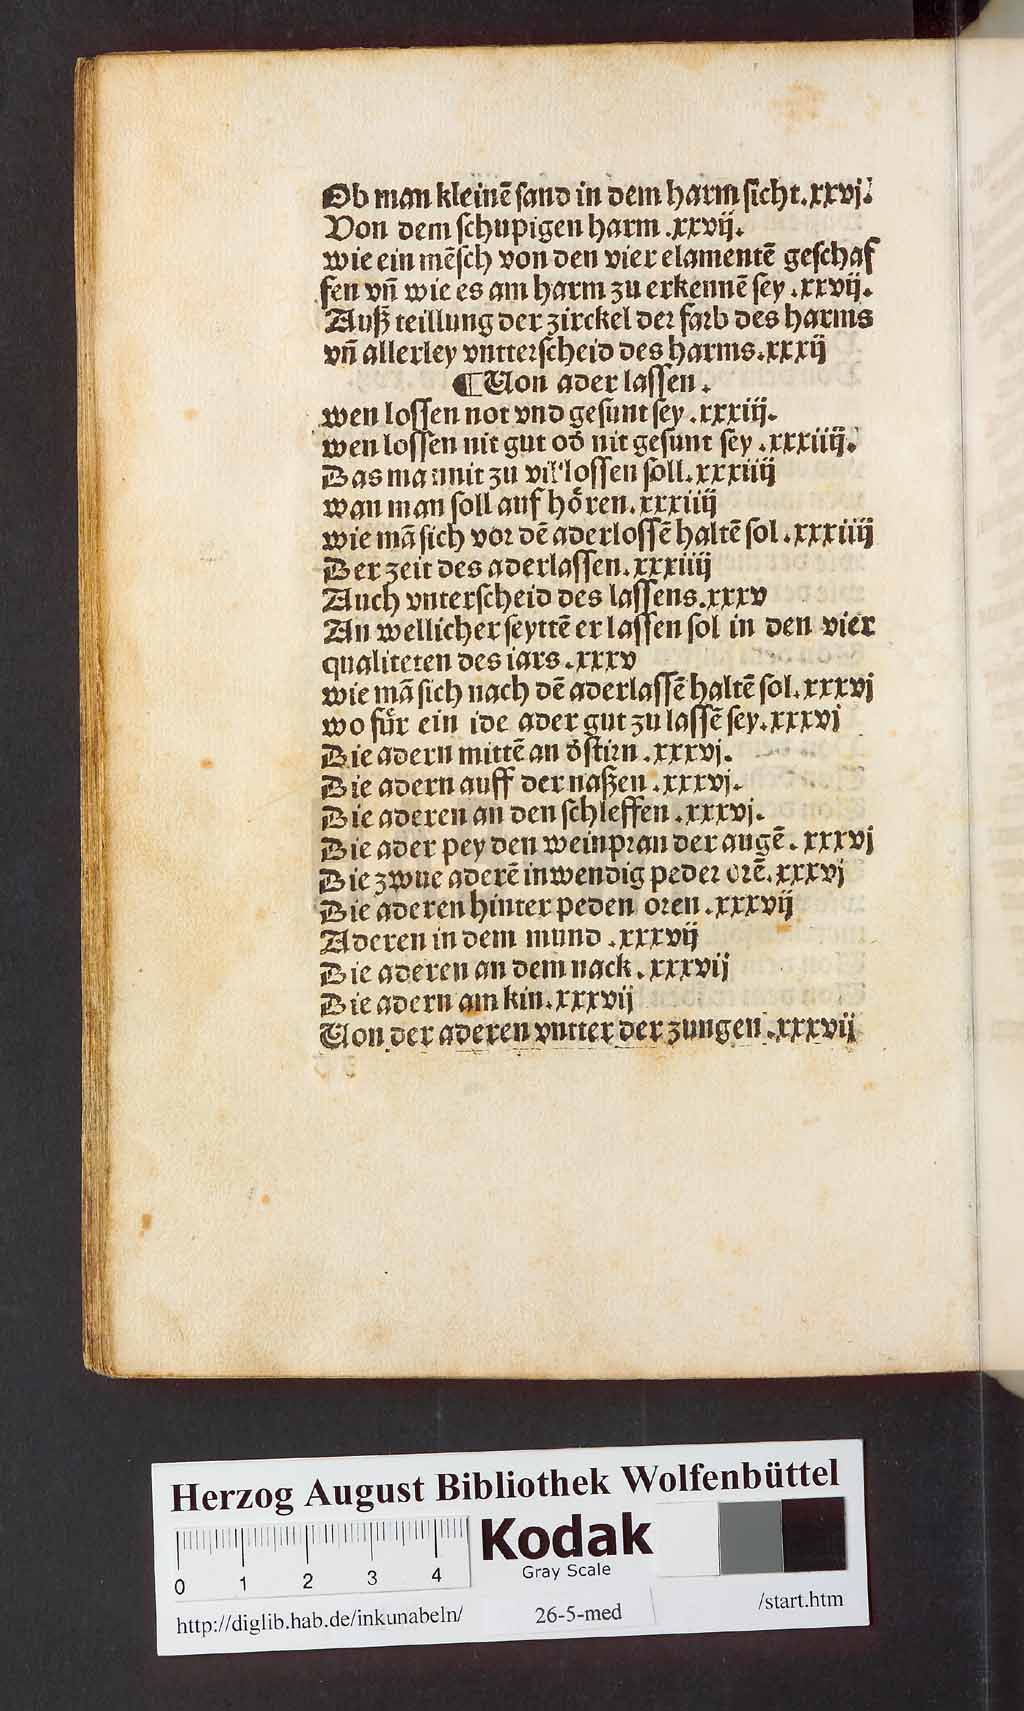 Ob man kleinē sand in dem harm sicht.xxvj.
Von dem schupigen harm .xxvij.
wie ein mēsch von den vier elamentē geschaf
fen vn̄ wie es am harm zu erkennē sey .xxvij.
Auß teillung der zirckel der farb des harms
vn̄ allerley vntterscheid des harms.xxxij
¶ Von ader lassen .
wen lossen not vnd gesunt sey .xxxiij.
wen lossen nit gut od̄ nit gesunt sey .xxxiiij.
Das man nit zu vil lossen soll.xxxiiij
wan man soll auf hoͤren.xxxiiij
wie mā sich vor dē aderlossē haltē sol .xxxiiij
Der zeit des aderlassen.xxxiiij
Auch vnterscheid des lassens.xxxv
An wellicher seyttē er lassen sol in den vier
qualiteten des iars .xxxv
wie mā sich nach dē aderlassē haltē sol.xxxvj
wo fuͤr ein ide ader gut zu lassē sey.xxxvj
Die adern mittē an d̄ stirn .xxxvj.
Die adern auff der naßen .xxxvj.
Die aderen an den schleffen .xxxvj.
Die ader pey den weinpran der augē . xxxvj
Die zwue aderē inwendig peder orē.xxxvj
Die aderen hinter peden oren .xxxvij
Aderen in dem mund .xxxvij
Die aderen an dem nack .xxxvij
Die adern am kin.xxxvij
Von der aderen vntter der zungen .xxxvij
Herzog August Bibliothek Wolfenbüttel
0 1 2 3 4
Kodak
Gray Scale
http://diglib.hab.de/inkunabeln/ 26-5-med /start.htm